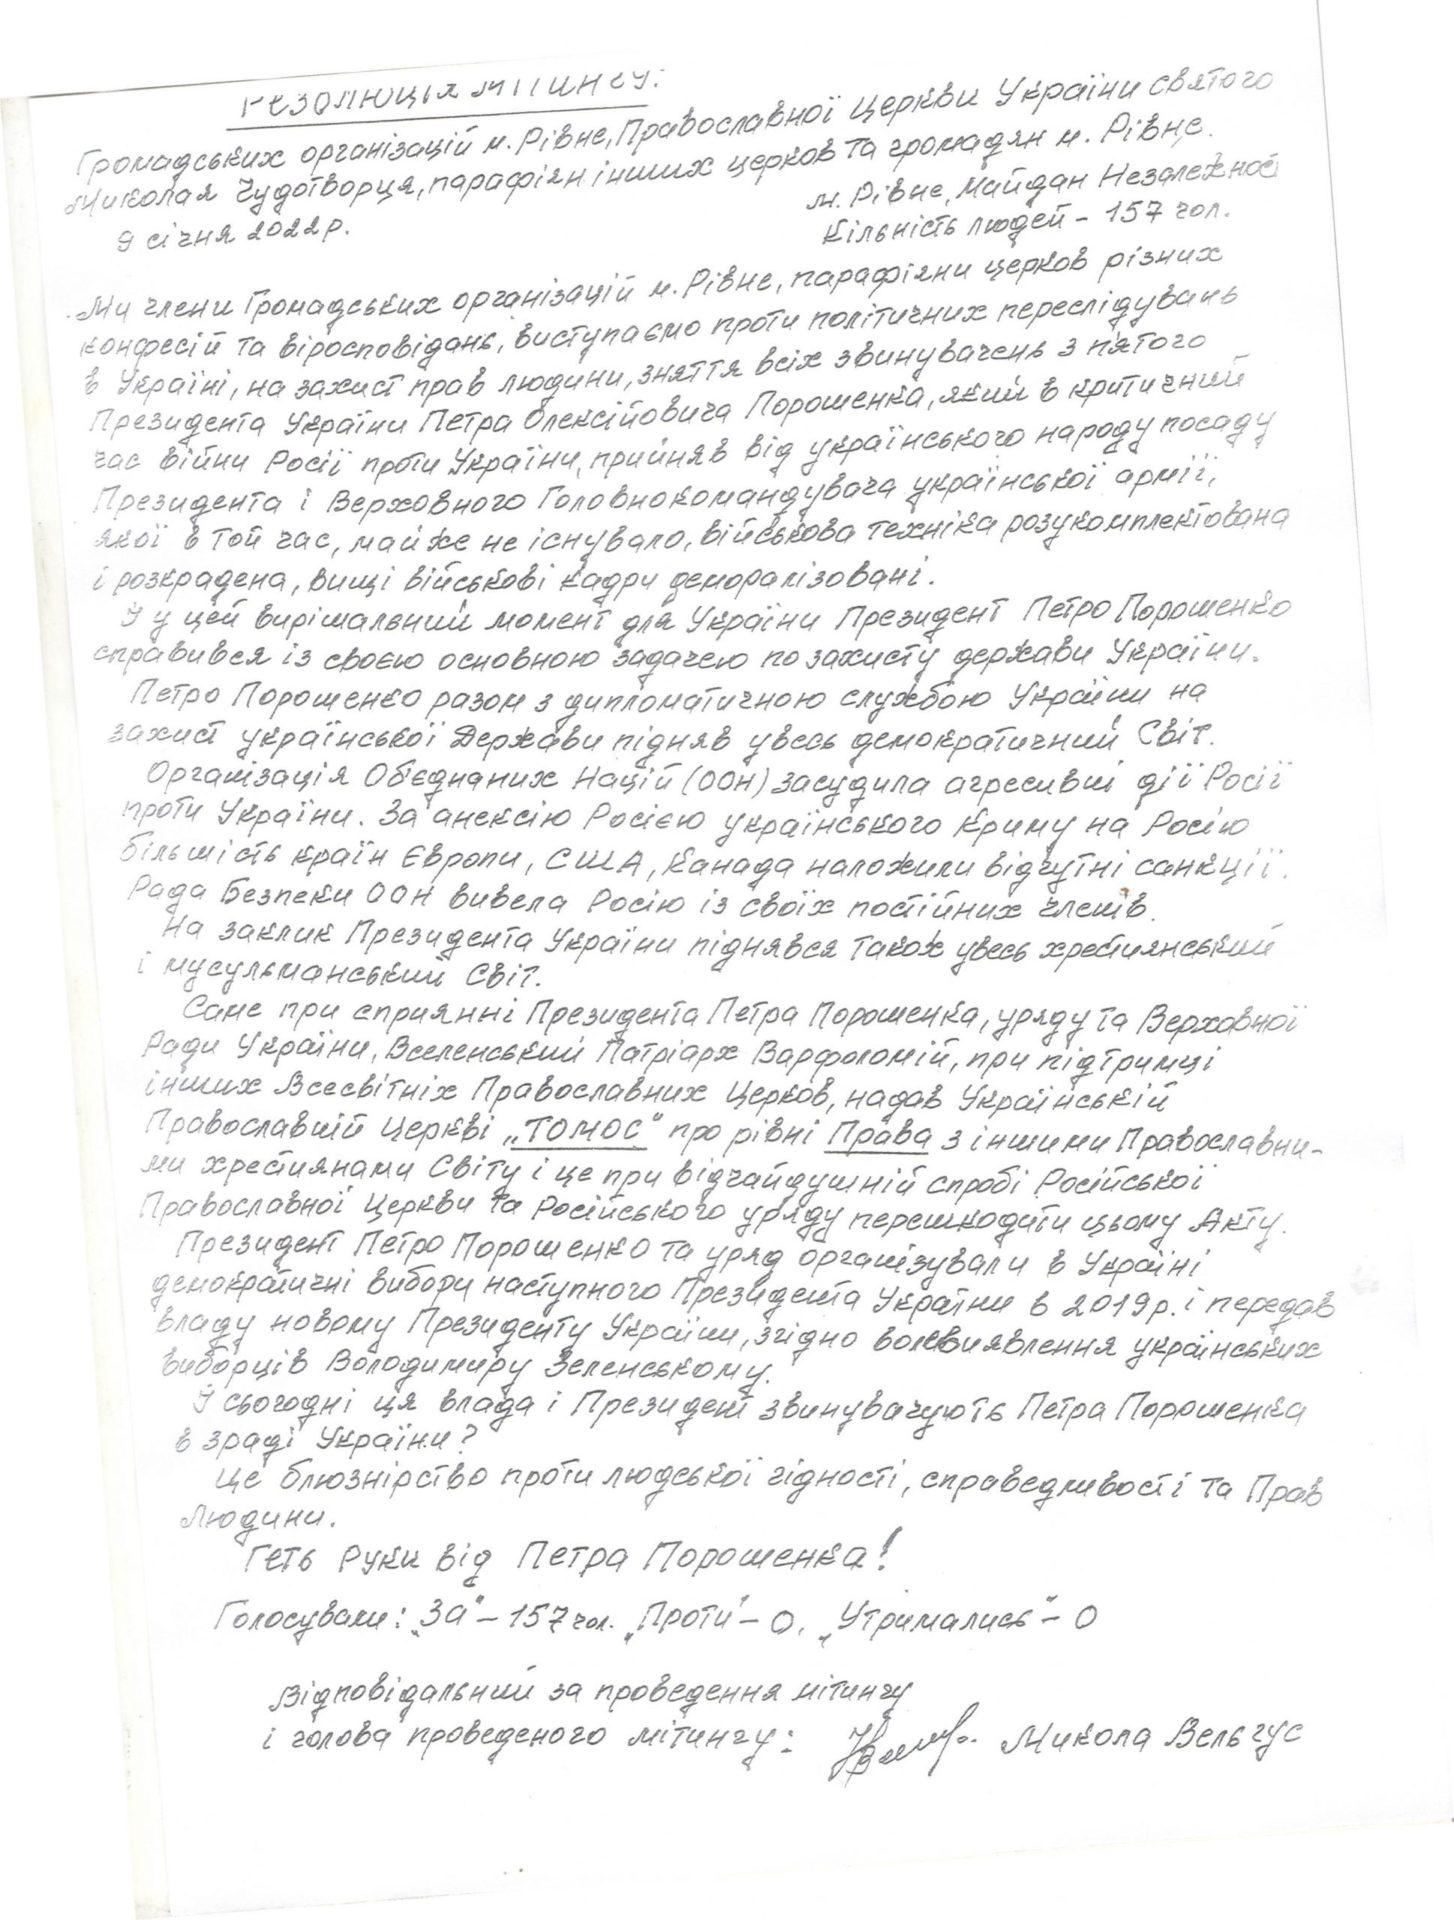 Резолюція мітингу:
Громадських організацій м. Рівне, Православної Церкви України святого
Миколая Чудотворця, парафіян інших церков та громадян м. Рівне.
9 січня 2022р.
м. Рівне, Майдан Незалежності
Кількість людей - 157 чол.
Ми члени Громадських організацій м. Рівне, парафіяни церков різних
конфесій та віросповідань, виступаємо проти політичних переслідувань
в Україні, на захист прав людини, зняття всіх звинувачень з п'ятого
Президента України Петра Олексійовича Порошенка, який в критичний
час війни Росії проти України, прийняв від українського народу посаду
Президента і Верховного Головнокомандувача української армії,
якої в той час, майже не існувало, військова техніка розукомплектована
і розкрадена, вищі військові кадри деморалізовані.
І у цей вирішальний момент для України Президент Петро Порошенко
справився із своєю основною задачею по захисту держави України.
Петро Порошенко разом з дипломатичною службою України на
захист української Держави підняв увесь демократичний Світ.
Організація Об'єднаних Націй (ООН) засудила агресивні дії Росії
проти України. За анексію Росією українського Криму на Росію
більшість країн Європи, США, Канада наложили відчутні санкції.
Рада Безпеки ООН вивела Росію із своїх постійних членів.
На заклик Президента України піднявся також увесь християнський
і мусульманський Світ.
Саме при сприянні Президента Петра Порошенка, уряду та Верховної
Ради України, Вселенський Патріарх Варфоломій, при підтримці
інших Всесвітніх Православних Церков, надав Українській
Православній Церкві „ТОМОС" про рівні Права з іншими Православни-
ми християнами Світу і це при відчайдушній спробі Російської
Православної Церкви та Російського уряду перешкодити цьому Акту.
Президент Петро Порошенко та уряд організували в Україні
демократичні вибори наступного Президента України в 2019р. і передав
владу новому Президенту України, згідно волевиявлення українських
виборців Володимиру Зеленському.
І сьогодні ця влада і Президент звинувачують Петра Порошенка
в зраді України?
Це блюзнірство проти людської гідності, справедливості та Прав
Людини.
Геть Руки від Петра Порошенка!
Голосували: „За" - 157 чол. „Проти" - 0, „Утримались" - 0
Відповідальний за проведення мітингу
і голова проведеного мітингу: Микола Вельгус